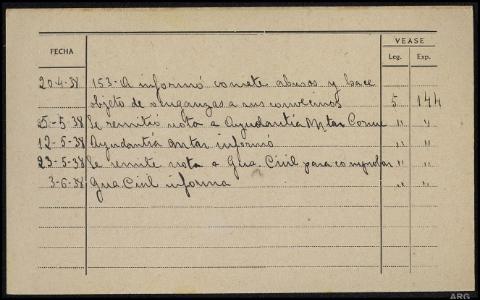 FECHA
VEASE
Leg. Exp.
20-4-38 153-A informó comete abusos y hace
objeto de venganzas a sus convecinos 5 144
5-5-38 Se remitió nota a Ayudantía Mtar " "
12-5-38 Ayudantía Mtar informó " "
23-5-38 Se remite nota a Gua. Civil para comprobar " "
3-6-38 Gua. Civil informa " "
ARG